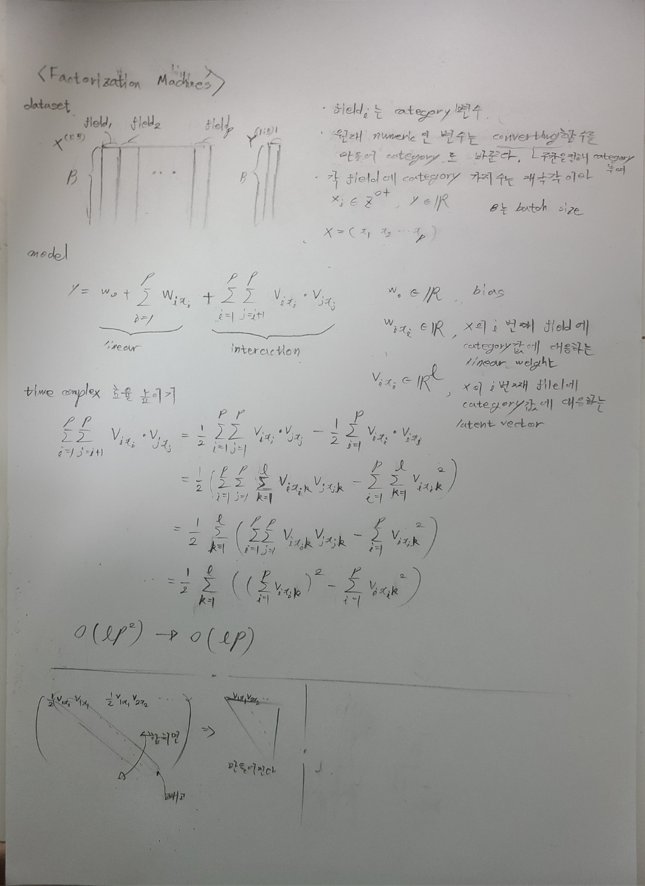 <Factorization Machines>
dataset
field₁ field₂ fieldₚ
X^(1:B) Y^(1:B)
B ... B
· fieldᵢ는 category 변수
· 원래 numeric인 변수는 converting함수를
만들어 category로 바꾼다.
category
· 각 field에 category 가지수는 제각각이다
xᵢ ∈ Z^0+, y ∈ ℝ B는 batch size
X = (x₁ x₂ ⋯ xₚ)
model
Y = w₀ + Σ_{i=1}^{p} W_{ixᵢ} + Σ_{i=1}^{p} Σ_{j=i+1}^{p} V_{ixᵢ} · V_{jxⱼ}
linear interaction
w₀ ∈ ℝ, bias
w_{ixᵢ} ∈ ℝ, x의 i번째 field에
category값에 대응하는
linear weight
V_{ixᵢ} ∈ ℝ^l, x의 i번째 field에
category값에 대응하는
latent vector
time complex 효율 높이기
Σ_{i=1}^{p} Σ_{j=i+1}^{p} V_{ixᵢ} · V_{jxⱼ} = 1/2 Σ_{i=1}^{p} Σ_{j=1}^{p} V_{ixᵢ} · V_{jxⱼ} − 1/2 Σ_{i=1}^{p} V_{ixᵢ} · V_{ixᵢ}
= 1/2 (Σ_{i=1}^{p} Σ_{j=1}^{p} Σ_{k=1}^{l} V_{ixᵢk} V_{jxⱼk} − Σ_{i=1}^{p} Σ_{k=1}^{l} V_{ixᵢk}²)
= 1/2 Σ_{k=1}^{l} (Σ_{i=1}^{p} Σ_{j=1}^{p} V_{ixᵢk} V_{jxⱼk} − Σ_{i=1}^{p} V_{ixᵢk}²)
= 1/2 Σ_{k=1}^{l} ((Σ_{i=1}^{p} V_{ixᵢk})² − Σ_{i=1}^{p} V_{ixᵢk}²)
O(lp²) → O(lp)
1/2 V_{1x₁} · V_{1x₁} 1/2 V_{1x₁} V_{2x₂} ⋯ ⇒ V_{1x₁} V_{2x₂} ⋯
합치면
만들어진다
빼고